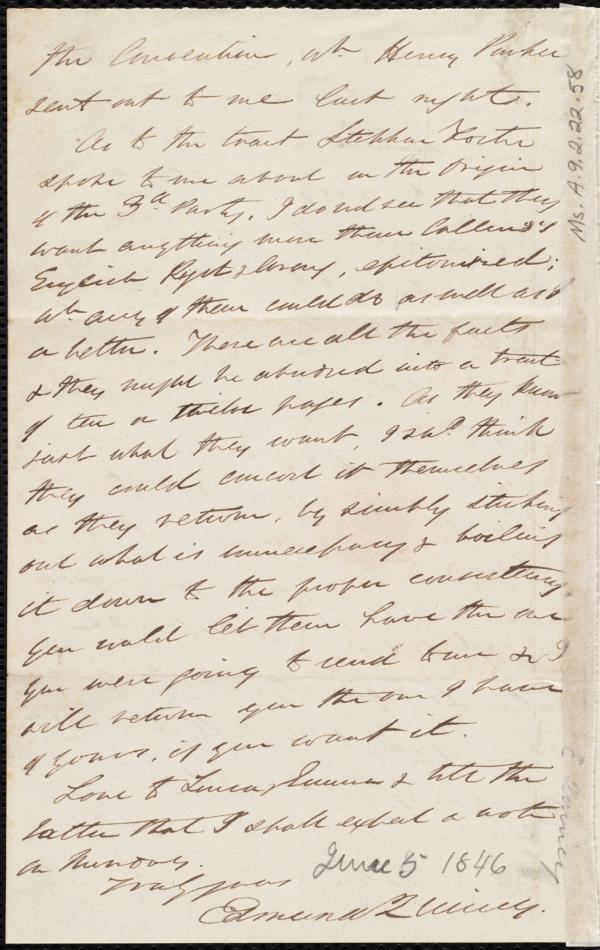 the Convention, wh. Henry Parker
sent out to me last night.
As to the tract Stephen Foster
spoke to me about on the Origin
of the 3d Party, I do not see that they
want anything more than Collins's
Right & Wrong, epitomized;
wh. any of them could do as well as I
or better. There are all the facts
& they might be abridged into a tract
of ten or twelve pages. As they know
just what they want, I shd. think
they could concoct it themselves
as they return, by simply striking
out what is unnecessary & boiling
it down to the proper consistency.
You could let them have the one
you were going to send to me & I
will return you the one I have
of yours, if you want it.
Love to Emma & tell the
latter that I shall expect a note
on Thursday.
Truly yours
Edmund Quincy.
June 5 1846
Ms. A.9.2.22.58